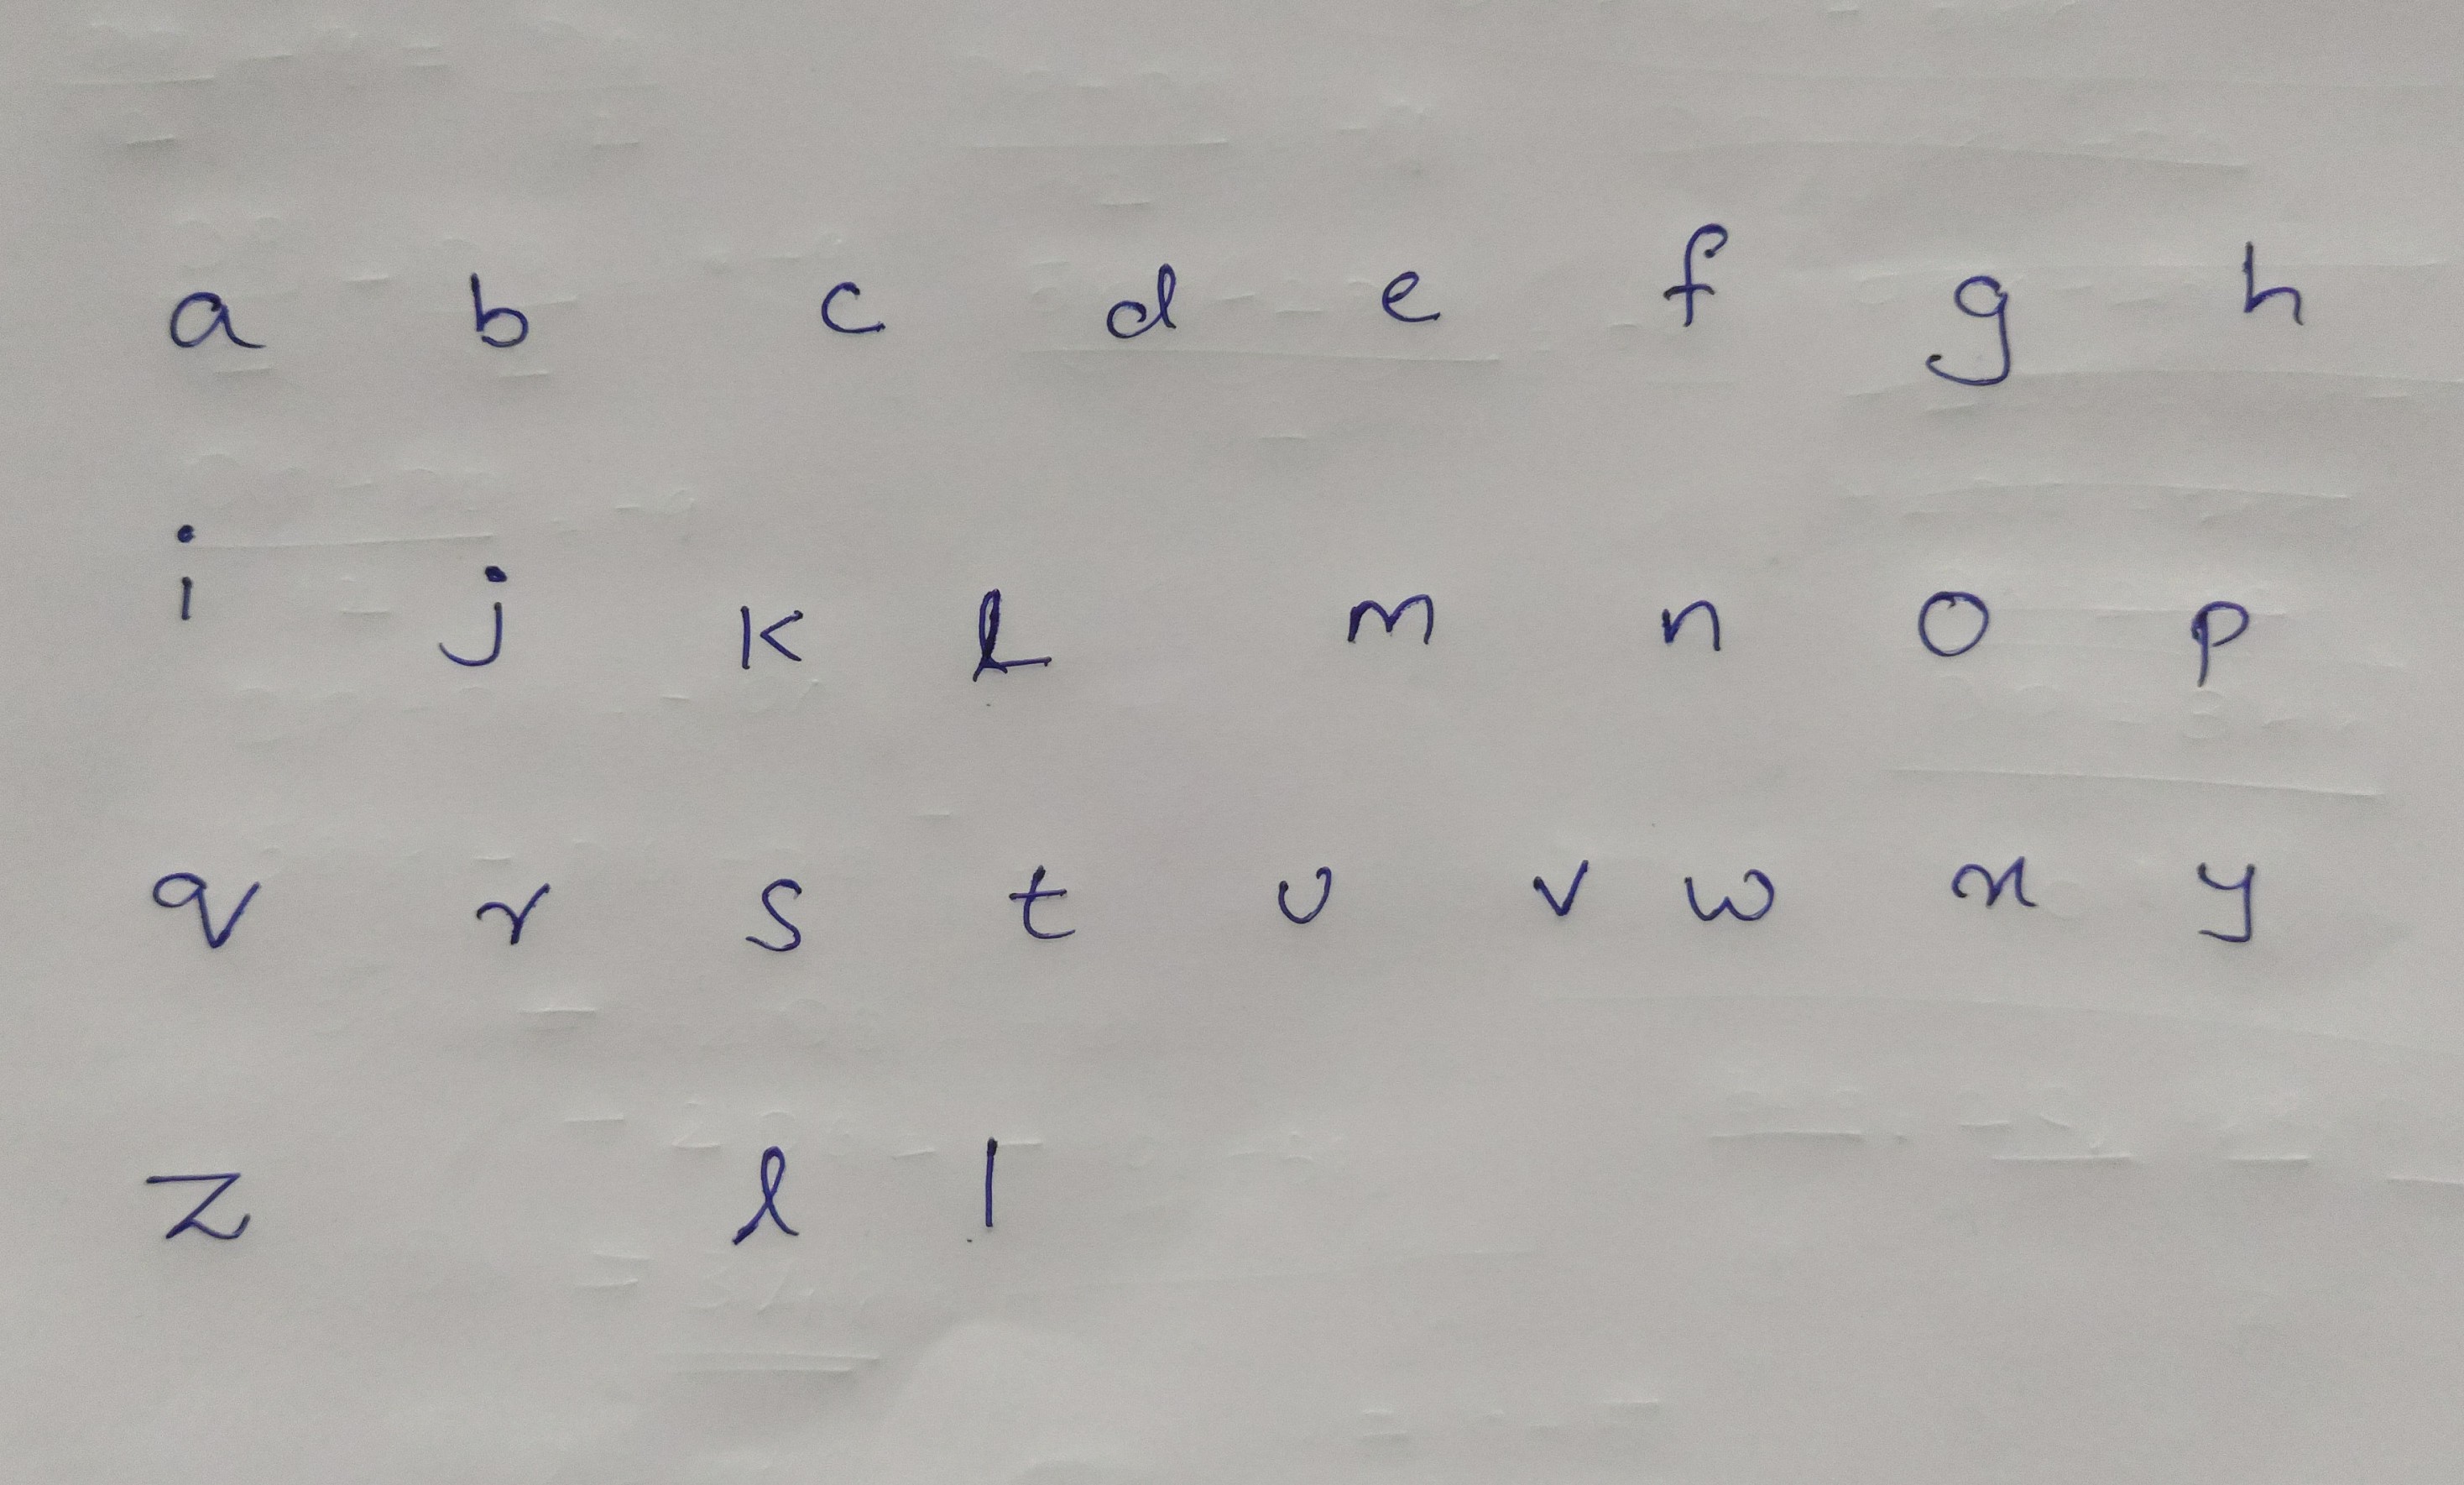 a b c d e f g h
i j k l m n o p
q r s t u v w x y
z l l